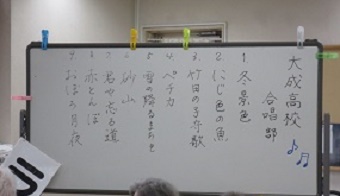 大成高校
合唱部
1 冬景色
2 にじ色の魚
3 竹田の子守歌
4 ペチカ
5 雪の降るまちを
6 砂山
7 君や忘る道
8 赤とんぼ
9 おぼろ月夜